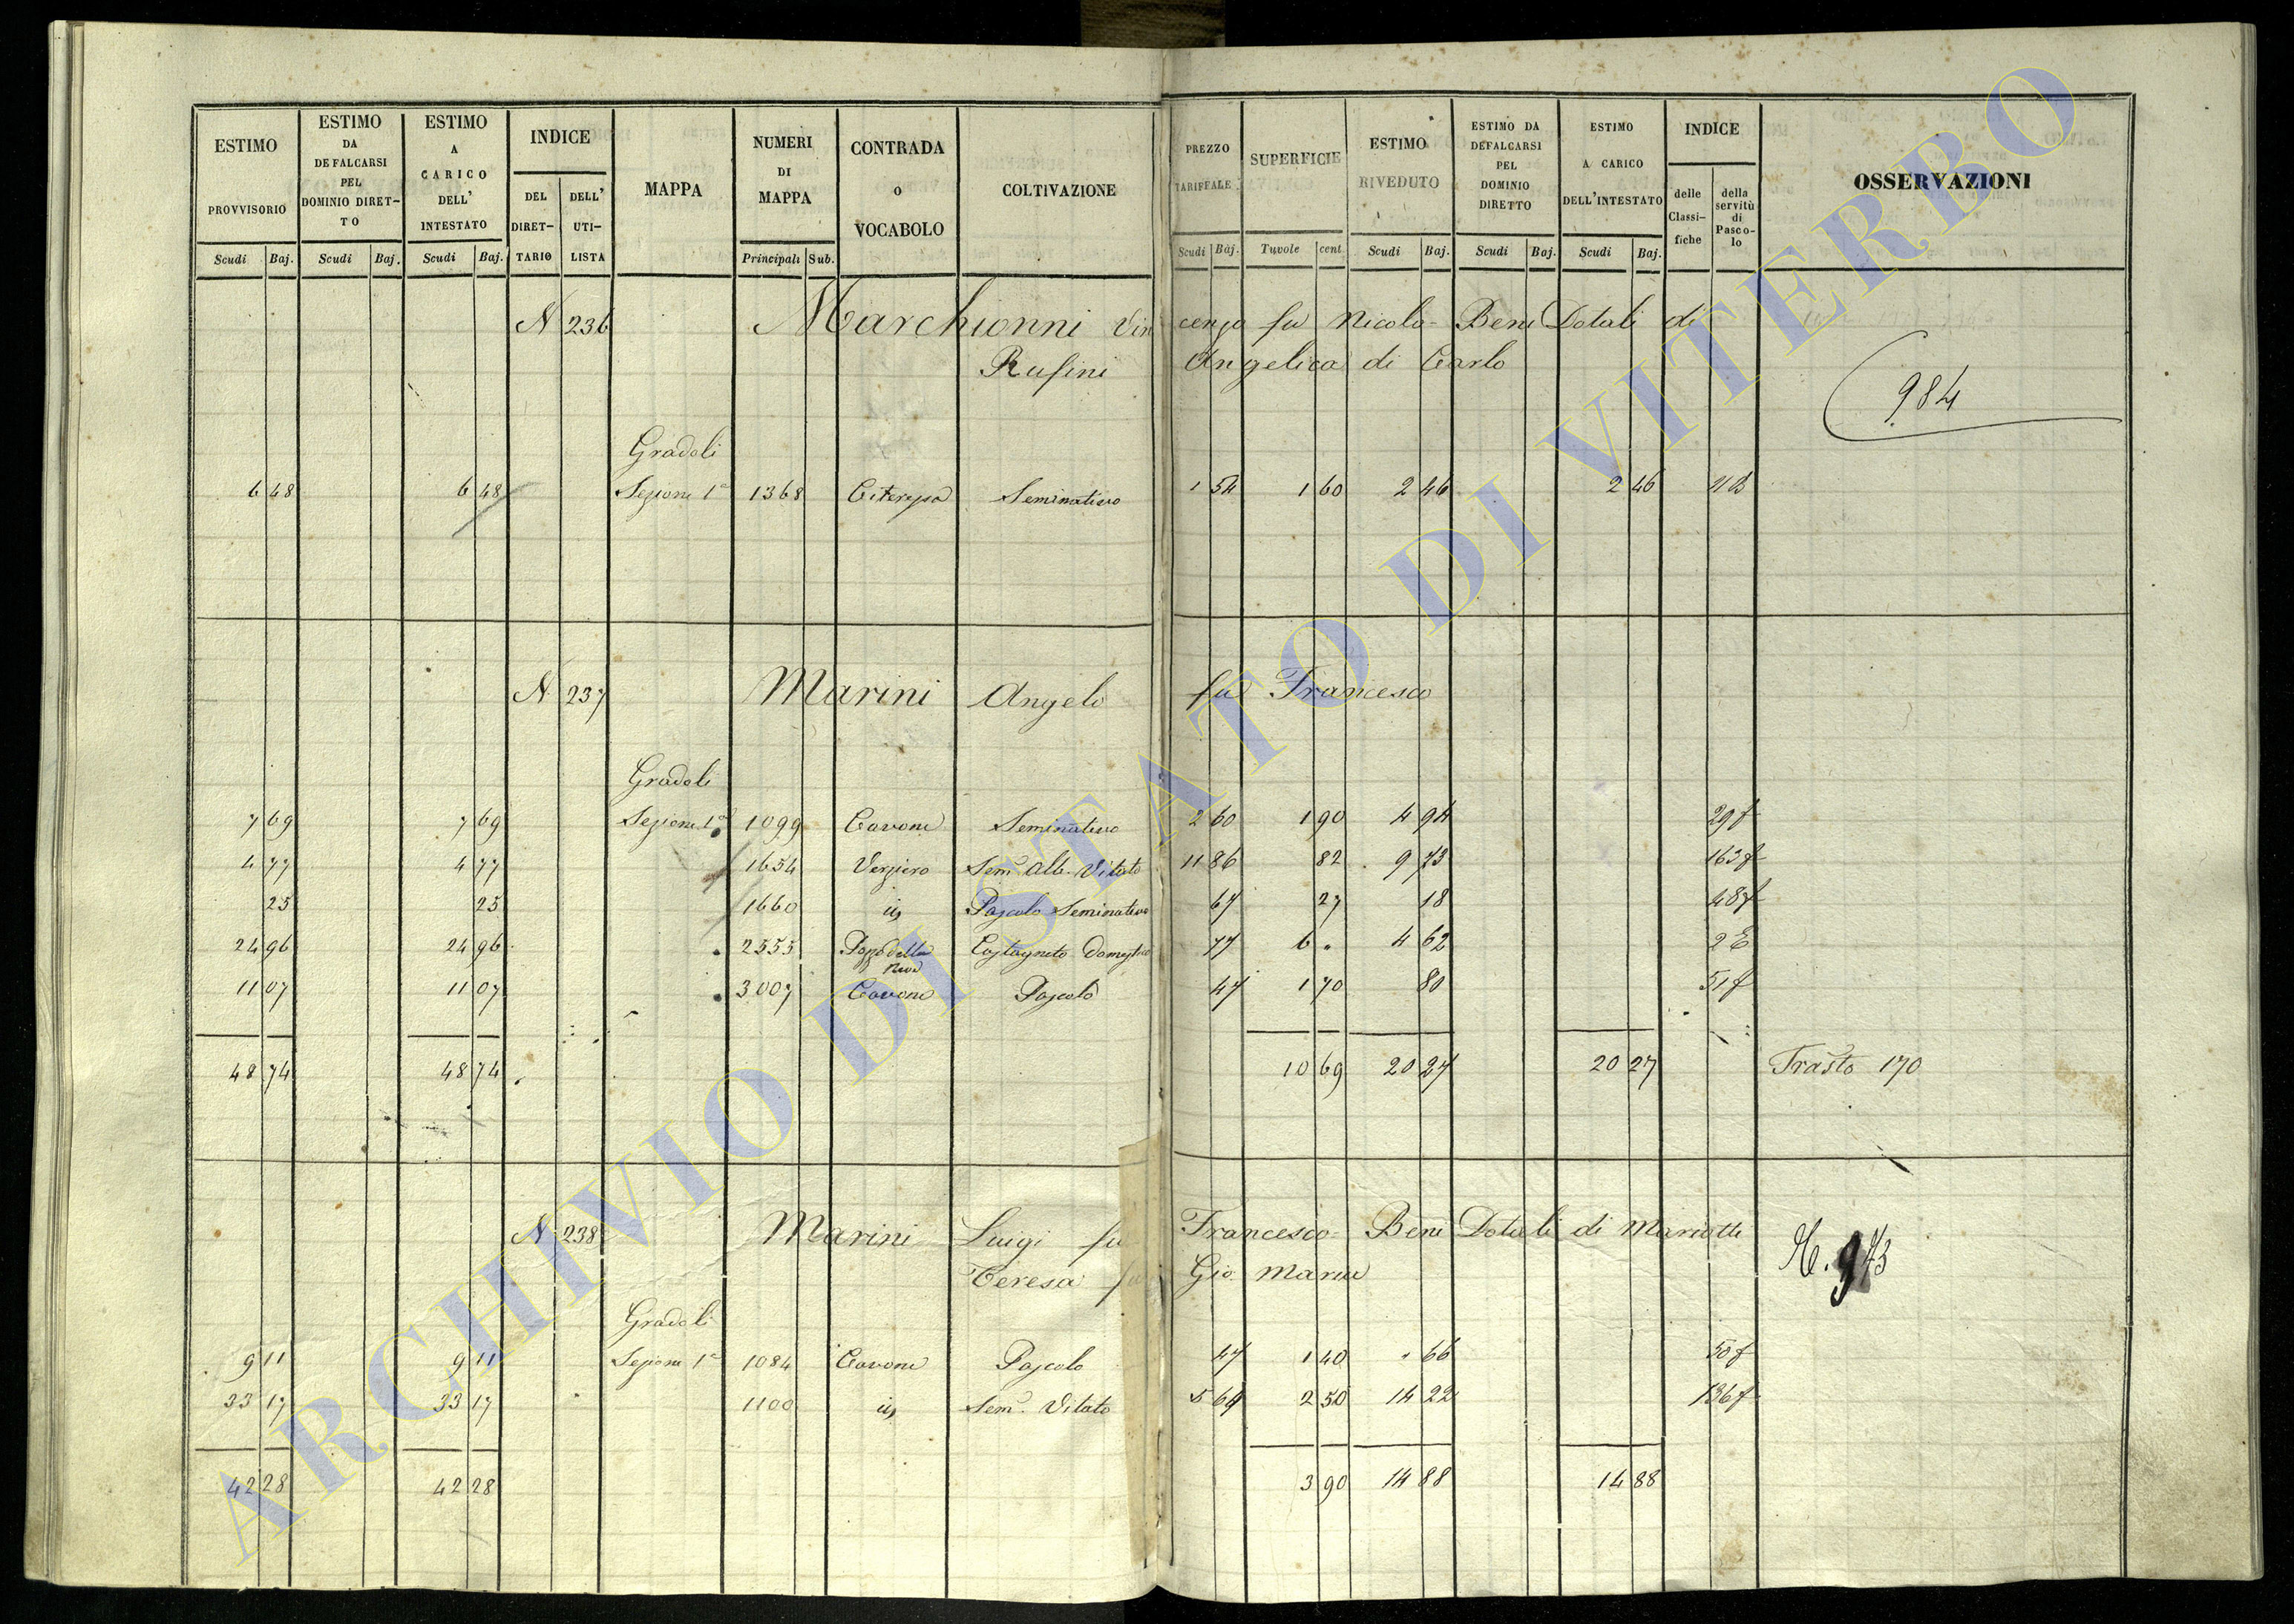 ESTIMO PROVVISORIO Scudi Baj.
ESTIMO DA DEFALCARSI PEL DOMINIO DIRETTO Scudi Baj.
ESTIMO A CARICO DELL' INTESTATO Scudi Baj.
INDICE DEL DIRETTARIO DELL' UTILISTA
MAPPA
NUMERI DI MAPPA Principali Sub.
CONTRADA O VOCABOLO
COLTIVAZIONE
PREZZO TARIFFALE Scudi Baj.
SUPERFICIE Tavole cent.
ESTIMO RIVEDUTO Scudi Baj.
ESTIMO DA DEFALCARSI PEL DOMINIO DIRETTO Scudi Baj.
ESTIMO A CARICO DELL'INTESTATO Scudi Baj.
INDICE delle Classifiche della servitù di Pascolo
OSSERVAZIONI
N 236 Marchionni Vincenzo fu Nicola Beni Dotali di
Rufini Angelica di Carlo
984
Gradoli
6 48 6 48 Sezione 1ª 1368 Seminativo 1 54 1 60 2 46 2 46
N 237 Marini Angelo fu Francesco
Gradoli
7 69 7 69 Sezione 1ª 1099 Cavone Seminativo 2 60 1 90 4 94 29 f
4 77 4 77 1654 Verziero Sem. Alb. Vitato 11 86 82 9 73 163 f
25 25 1660 Pascolo Seminativo 67 27 18 48 f
24 96 24 96 2555 Pozzo della Neve Castagneto Domestico 77 6 " 4 62 2 E
11 07 11 07 3007 Cavone Pascolo 47 1 70 80 51 f
48 74 48 74 10 69 20 27 20 27 Trasto 170
N 238 Marini Luigi fu Francesco Beni Dotali di Mariotti
Teresa fu Gio Maria
973
Gradoli
9 11 9 11 Sezione 1ª 1084 Cavone Pascolo 47 1 40 " 66 50 f
33 17 33 17 1100 Sem. Vitato 5 69 2 50 14 22 136 f
42 28 42 28 3 90 14 88 14 88
ARCHIVIO DI STATO DI VITERBO